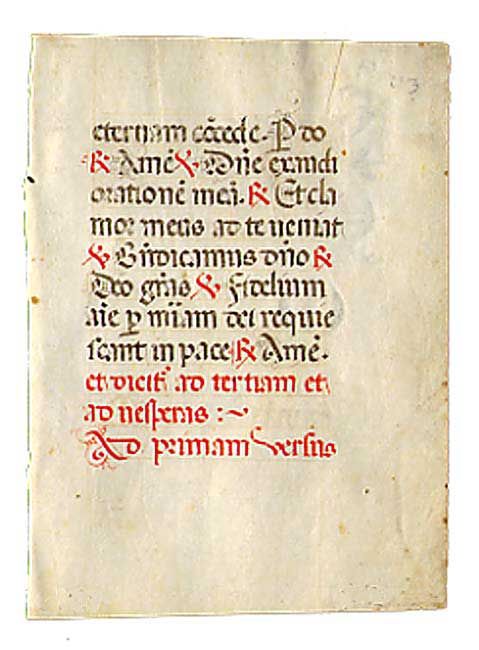 eternam cōcede. P do
℟ Amē ℣ Dn̄e exaudi
orationē meā. ℟ Et cla
mor meus ad te veniat
℣ Bn̄dicamus dn̄o ℟
Deo gr̄as ℣ Fidelium
aīe ꝑ mīam dei requie
scant in pace ℟ Amē.
et dicit᷑ ad tertiam et
ad vesperas :~
Ad primam versus